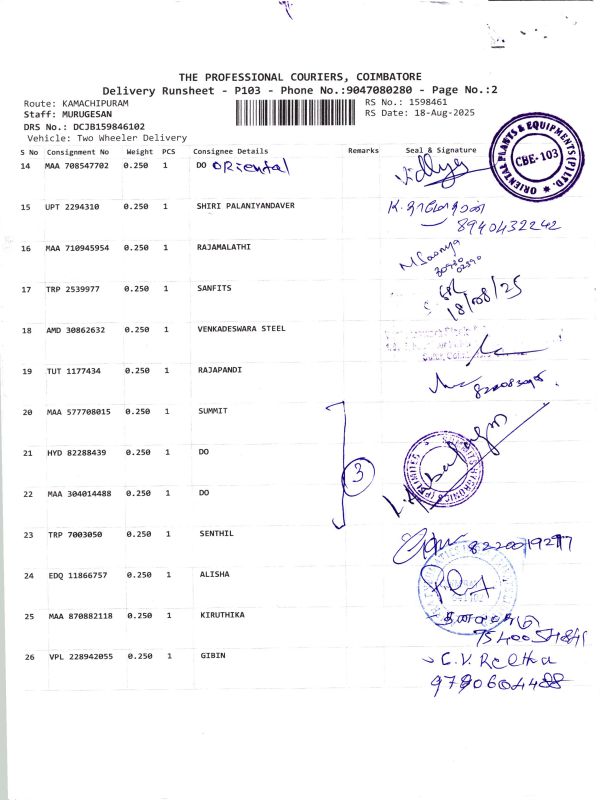 THE PROFESSIONAL COURIERS, COIMBATORE
Delivery Runsheet - P103 - Phone No.:9047080280 - Page No.:2
Route: KAMACHIPURAM RS No.: 1598461
Staff: MURUGESAN RS Date: 18-Aug-2025
DRS No.: DCJB159846102
Vehicle: Two Wheeler Delivery
S No Consignment No Weight PCS Consignee Details Remarks Seal & Signature
14 MAA 708547702 0.250 1 DO Oriental Vidhya
ORIENTAL PLANTS & EQUIPMENTS (P) LTD.
CBE-103
15 UPT 2294310 0.250 1 SHIRI PALANIYANDAVER
8940432242
16 MAA 710945954 0.250 1 RAJAMALATHI
17 TRP 2539977 0.250 1 SANFITS
18/08/25
18 AMD 30862632 0.250 1 VENKADESWARA STEEL
19 TUT 1177434 0.250 1 RAJAPANDI
20 MAA 577708015 0.250 1 SUMMIT
21 HYD 82288439 0.250 1 DO
3
22 MAA 304014488 0.250 1 DO
23 TRP 7003050 0.250 1 SENTHIL
24 EDQ 11866757 0.250 1 ALISHA
25 MAA 870882118 0.250 1 KIRUTHIKA
26 VPL 228942055 0.250 1 GIBIN
9790604488